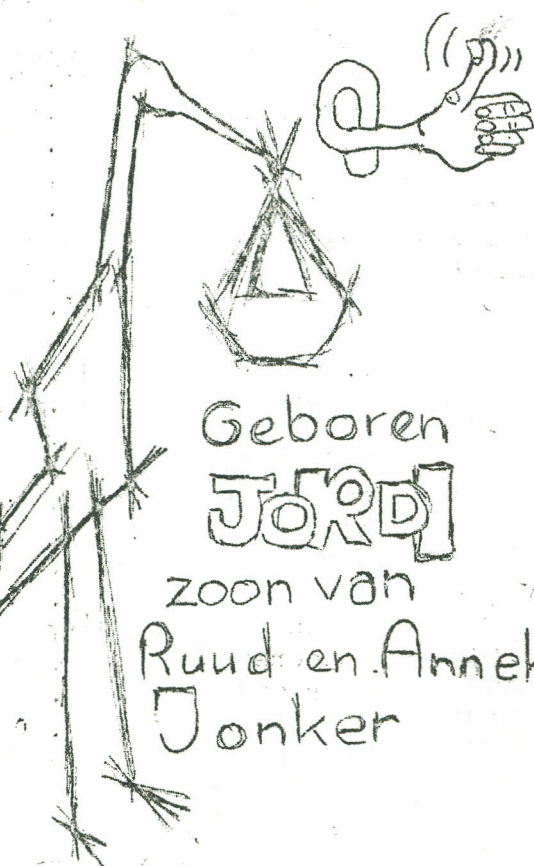 Geboren
JORDI
zoon van
Ruud en Annek
Jonker